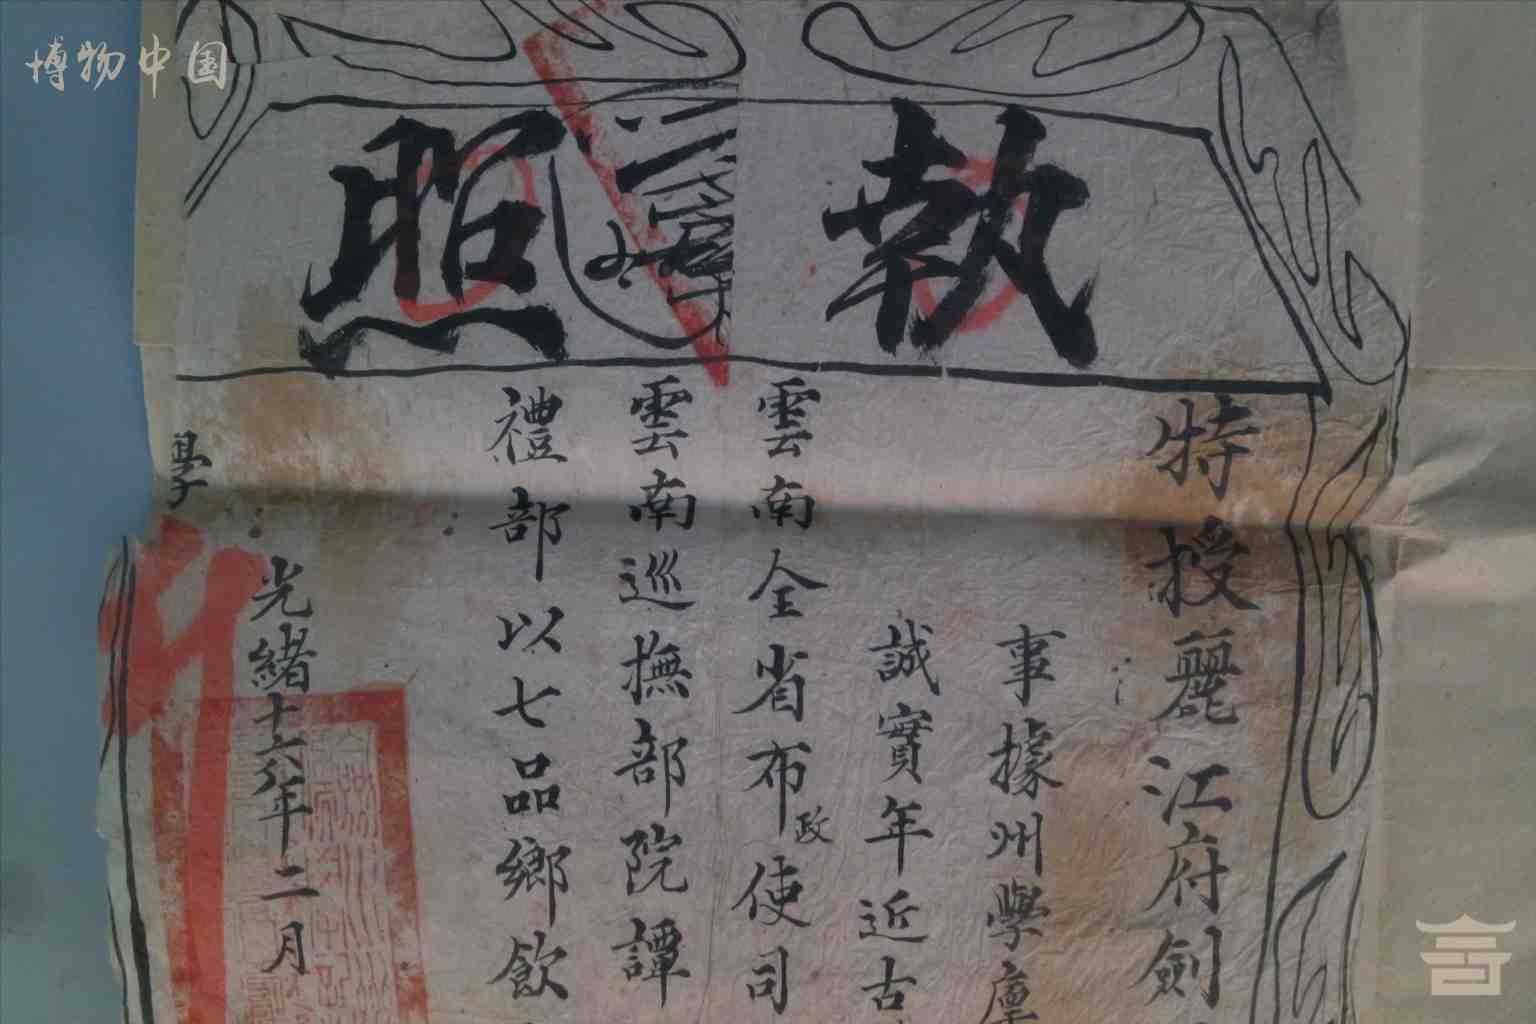 博物中国
執照
特授麗江府劍
事據州學廩
誠實年近古
雲南全省布政使司
雲南巡撫部院譚
禮部以七品鄉飲
光緒十六年二月
學